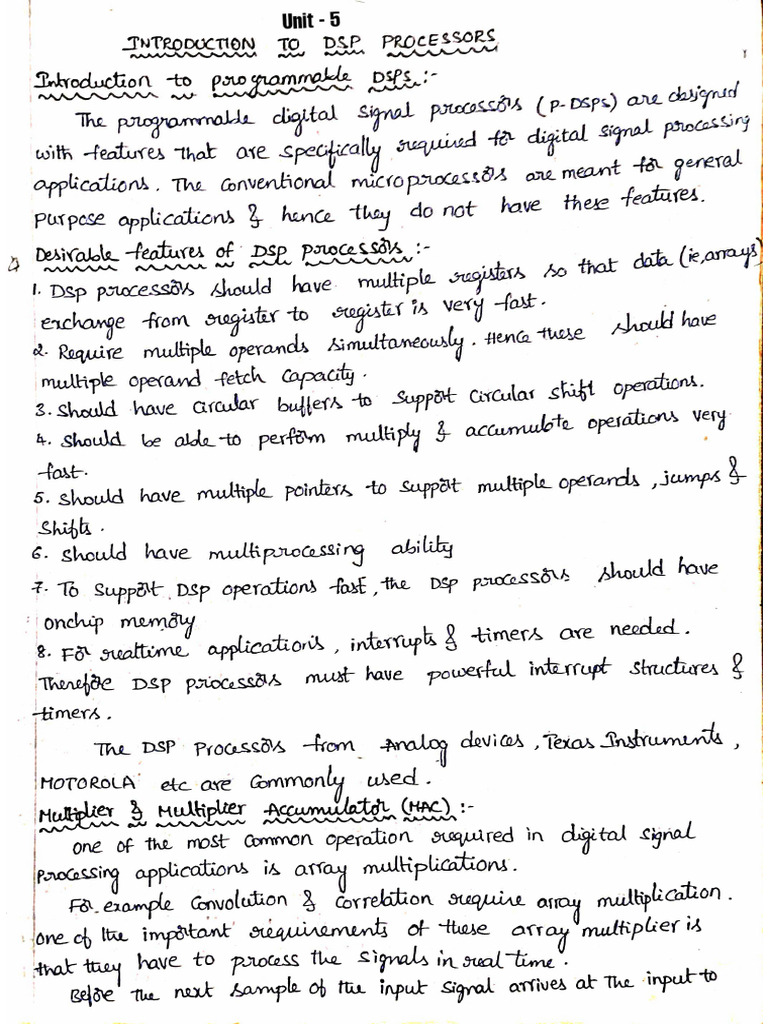 Unit - 5
INTRODUCTION TO DSP PROCESSORS
Introduction to programmable DSPs :-
The programmable digital signal processors (P-DSPs) are designed
with features that are specifically required for digital signal processing
applications. The conventional microprocessors are meant for general
purpose applications & hence they do not have these features.
Desirable features of DSP processors :-
1. DSP processors should have multiple registers so that data (ie, arrays)
exchange from register to register is very fast.
2. Require multiple operands simultaneously. Hence these should have
multiple operand fetch capacity.
3. Should have circular buffers to support circular shift operations.
4. Should be able to perform multiply & accumulate operations very
fast.
5. Should have multiple pointers to support multiple operands, jumps &
shifts.
6. Should have multiprocessing ability
7. To support DSP operations fast, the DSP processors should have
onchip memory
8. For realtime applications, interrupts & timers are needed.
Therefore DSP processors must have powerful interrupt structures &
timers.
The DSP Processors from Analog devices, Texas Instruments,
MOTOROLA etc are commonly used.
Multiplier & Multiplier Accumulator (MAC) :-
One of the most common operation required in digital signal
processing applications is array multiplications.
For example convolution & correlation require array multiplication.
One of the important requirements of these array multiplier is
that they have to process the signals in real time.
Before the next sample of the input signal arrives at the input to